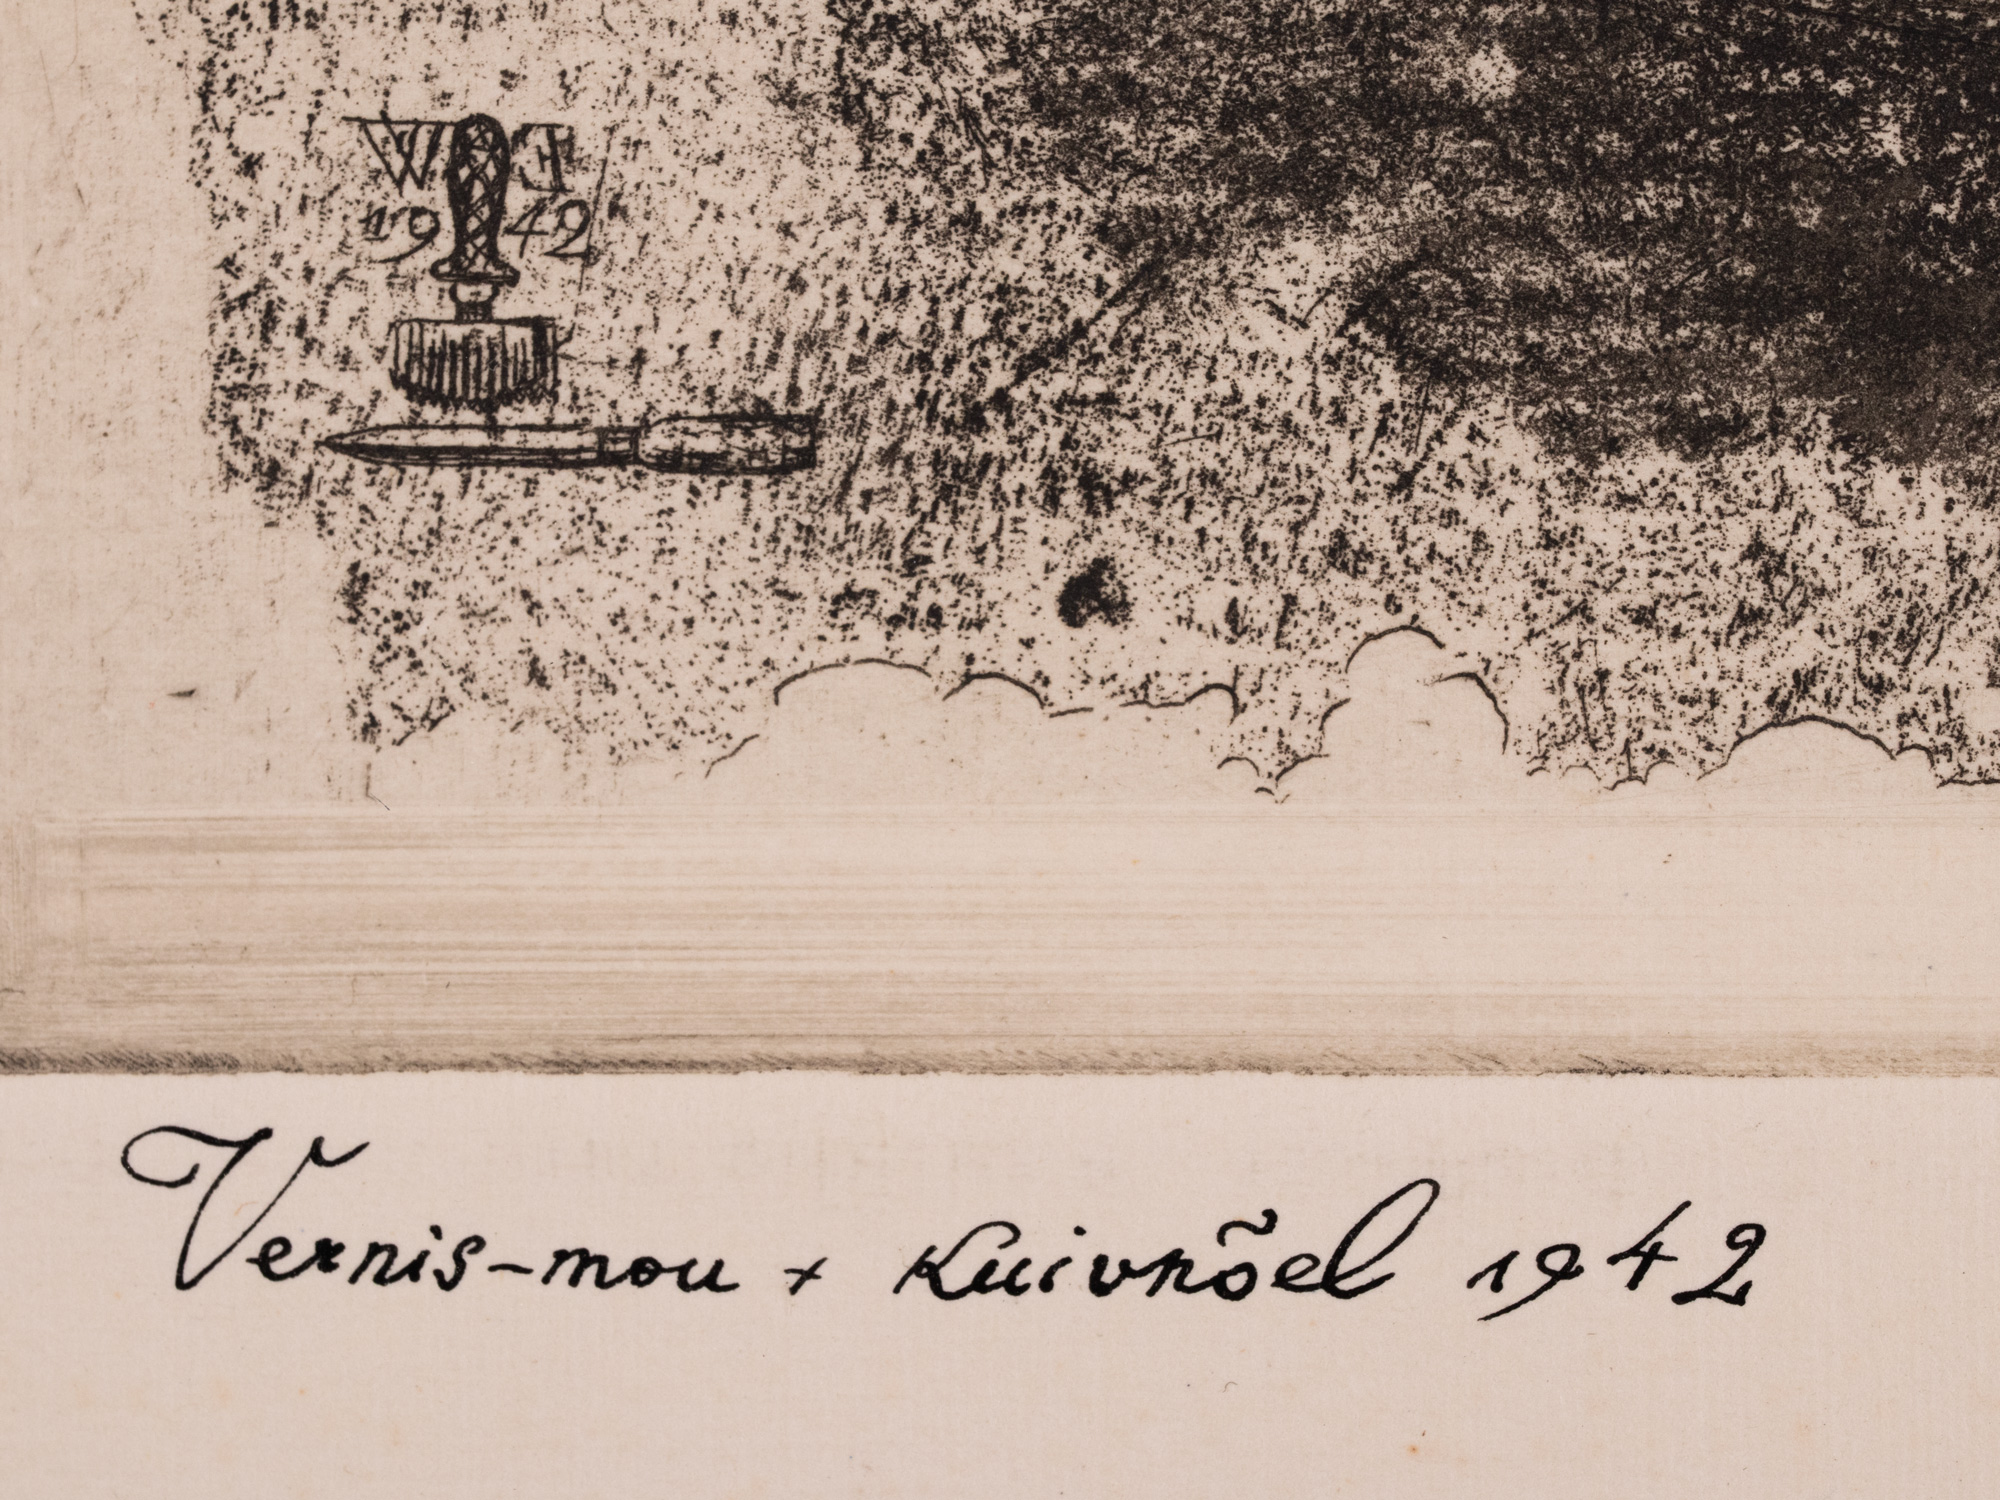 WE
1942
Vernis-mou + Kuivnõel 1942